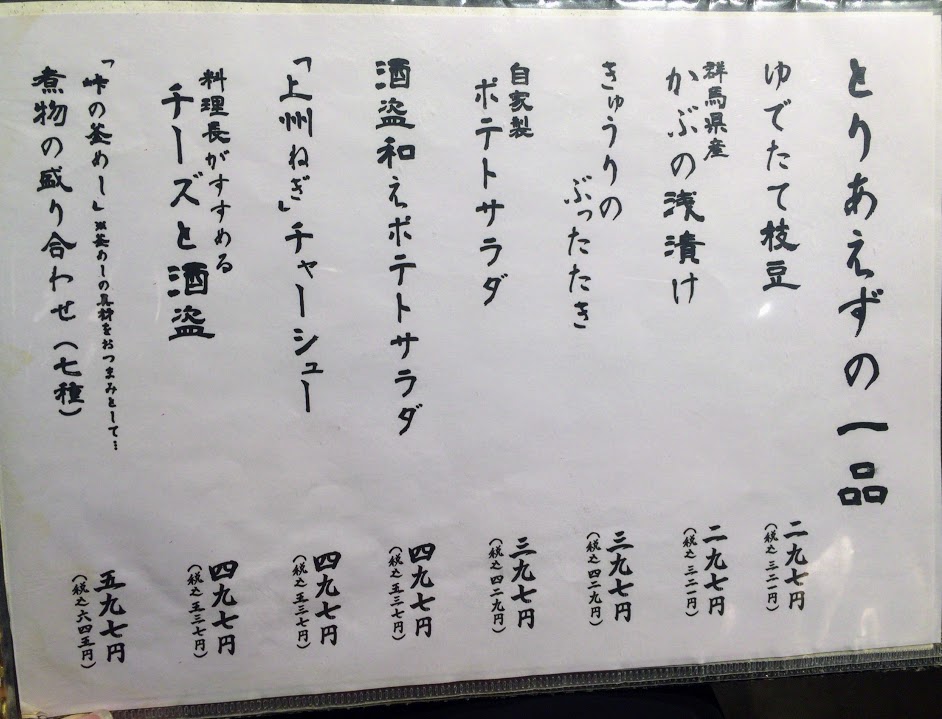 とりあえずの一品
ゆでたて枝豆
二九七円
(税込三二一円)
群馬県産
かぶの浅漬け
二九七円
(税込三二一円)
きゅうりの
ぶったたき
三九七円
(税込四二九円)
自家製
ポテトサラダ
三九七円
(税込四二九円)
酒盗和えポテトサラダ
四九七円
(税込五三七円)
「上州ねぎ」チャーシュー
四九七円
(税込五三七円)
料理長がすすめる
チーズと酒盗
四九七円
(税込五三七円)
「峠の釜めし」※釜めしの具材をおつまみとして…
煮物の盛り合わせ(七種)
五九七円
(税込六四五円)